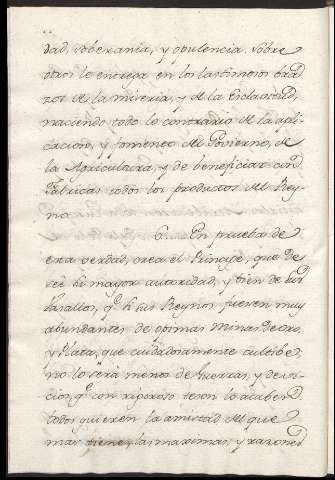 dad, soberania, y opulencia. Sobre
otros le entrega en los lastimosos bra
zos de la miseria, y de la Esclavitud,
naciendo todo lo contrario de la apli-
cacion, y fomento del Govierno, de
la Agricultura, y de beneficiar con
Fabricas todos los productos del Rey-
no.
6. En prueba de
esta verdad, crea el Principe, que de-
sée la mayor autoridad, y bien de sus
Vasallos, q.e si sus Reynos fuesen muy
abundantes de opimas minas de oro,
y Plata, que cuidadosamente cultibe,
no lo será menos de Guerras, y de so-
cios, q.e con riguroso teson lo acaben
todos quieren la amistad del que
mas tiene, las maximas, y razones